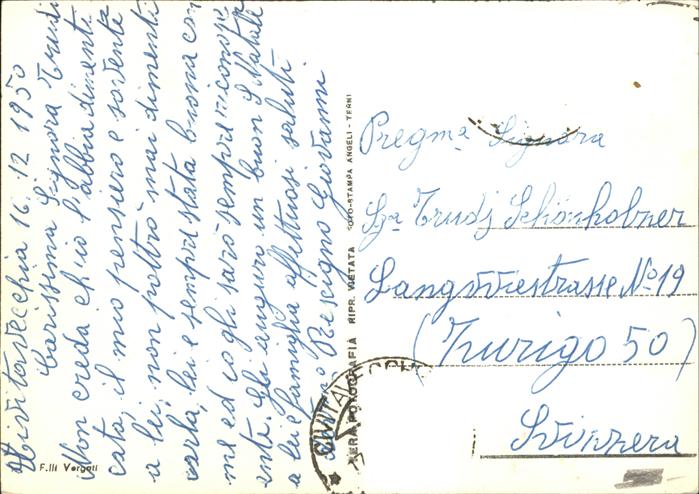 Civitavecchia 16.12.1950
Carissima Signora Trudi
Non creda ch'io l'abbia dimenti
cata, il mio pensiero e sovente
a lei, non pottrò mai dimenti
carla, lei e sempre stata buona con
me ed io gli sarò sempre riconosc
ente. Gli auguro un buon S. Natale
a lei e famiglia affettuosi saluti
Rescigno Giovanni
F.lli Vergati
VERA FOTOGRAFIA RIPR. VIETATA FOTO-STAMPA ANGELI - TERNI
Pregma Signora
Sga Trudj Schönholzner
Langwiestrasse No 19
(Zurigo 50)
Svizzera
CIVITAV